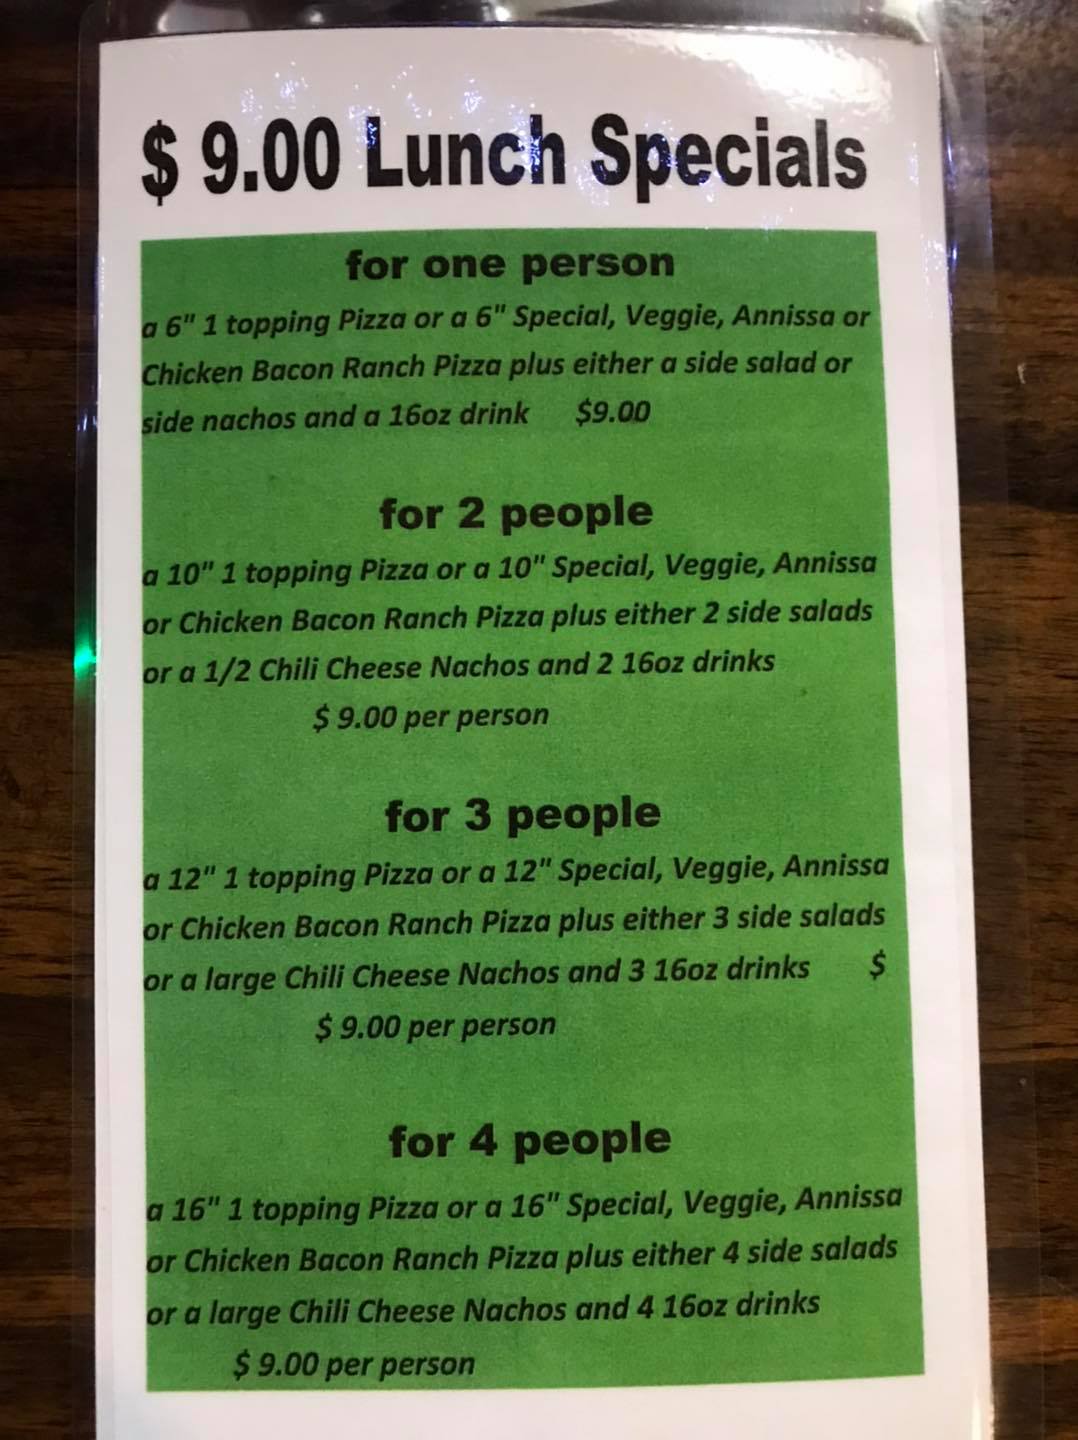 $ 9.00 Lunch Specials
for one person
a 6" 1 topping Pizza or a 6" Special, Veggie, Annissa or
Chicken Bacon Ranch Pizza plus either a side salad or
side nachos and a 16oz drink $9.00
for 2 people
a 10" 1 topping Pizza or a 10" Special, Veggie, Annissa
or Chicken Bacon Ranch Pizza plus either 2 side salads
or a 1/2 Chili Cheese Nachos and 2 16oz drinks
$ 9.00 per person
for 3 people
a 12" 1 topping Pizza or a 12" Special, Veggie, Annissa
or Chicken Bacon Ranch Pizza plus either 3 side salads
or a large Chili Cheese Nachos and 3 16oz drinks $
$ 9.00 per person
for 4 people
a 16" 1 topping Pizza or a 16" Special, Veggie, Annissa
or Chicken Bacon Ranch Pizza plus either 4 side salads
or a large Chili Cheese Nachos and 4 16oz drinks
$ 9.00 per person